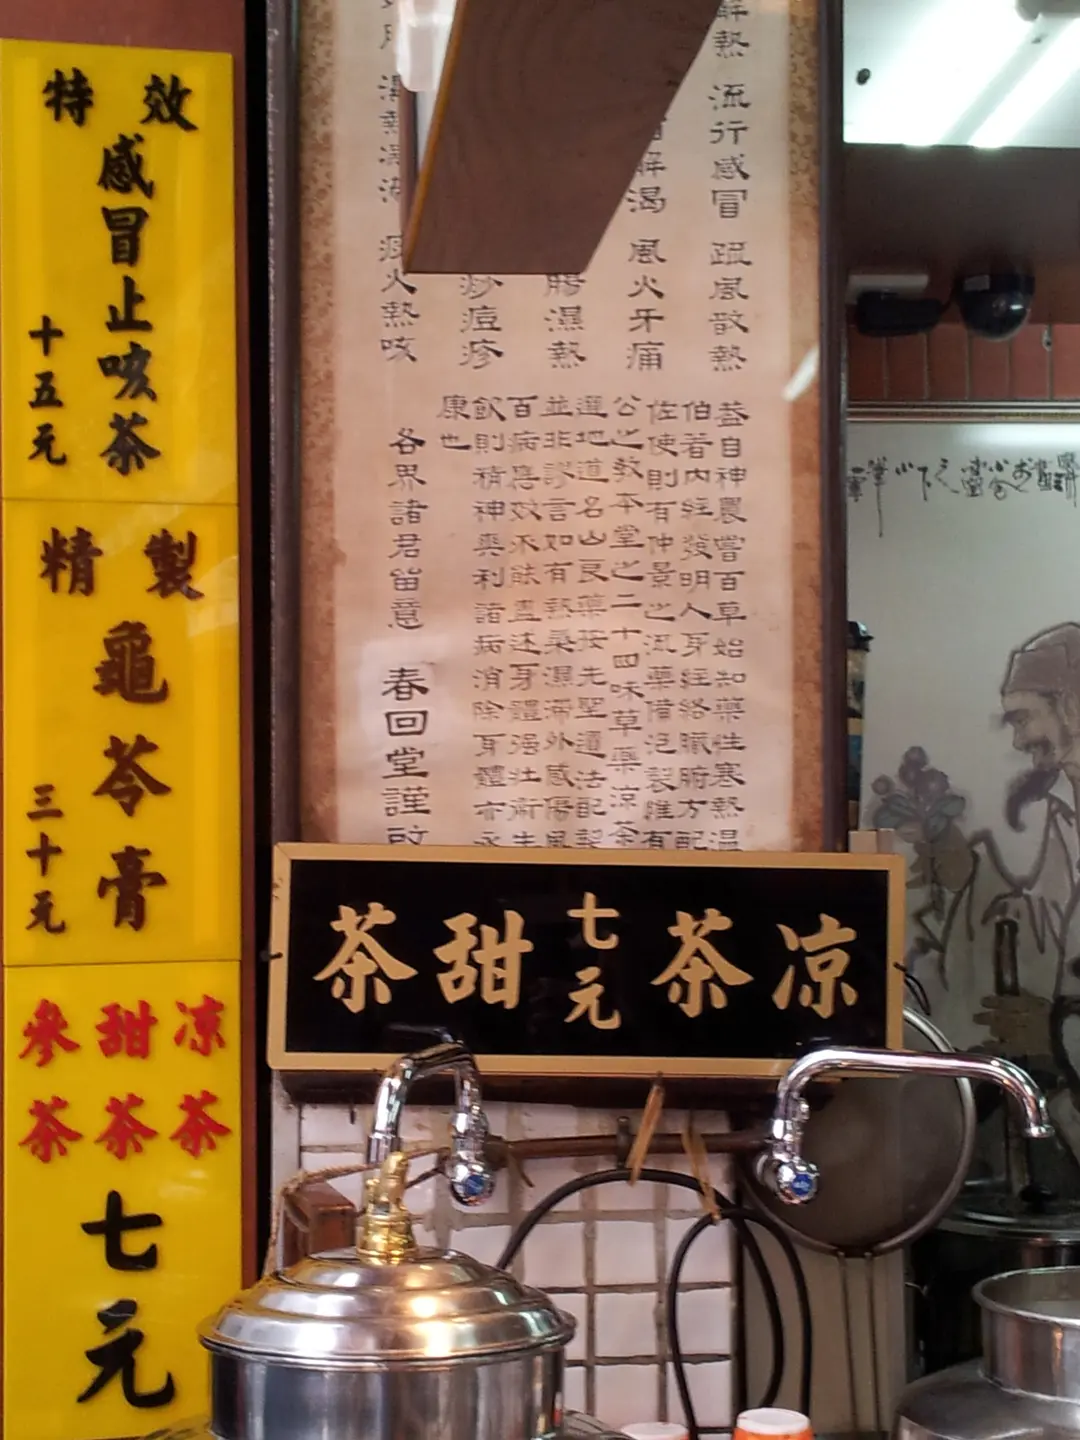 特效
感冒止咳茶
十五元
精製
龜苓膏
三十元
參甜凉
茶茶茶
七元
解熱 流行感冒 疏風散熱
解渴 風火牙痛
腸濕熱
痧痘疹
痰火熱咳
益自神農嘗百草始知藥性寒熱温
伯著内經發明人身經絡臟腑方配
佐使則有仲景之流藥備泡製雖有
公之教本堂之二十四味草藥涼茶
選地道名山良藥按先聖遺法配製
並非謬言如有熱染濕滯外感傷風
百病應效不能盡述身體强壯衛生
飲則精神與利諸病消除身體亦永
康也
各界諸君留意 春回堂謹啟
茶甜七元茶凉